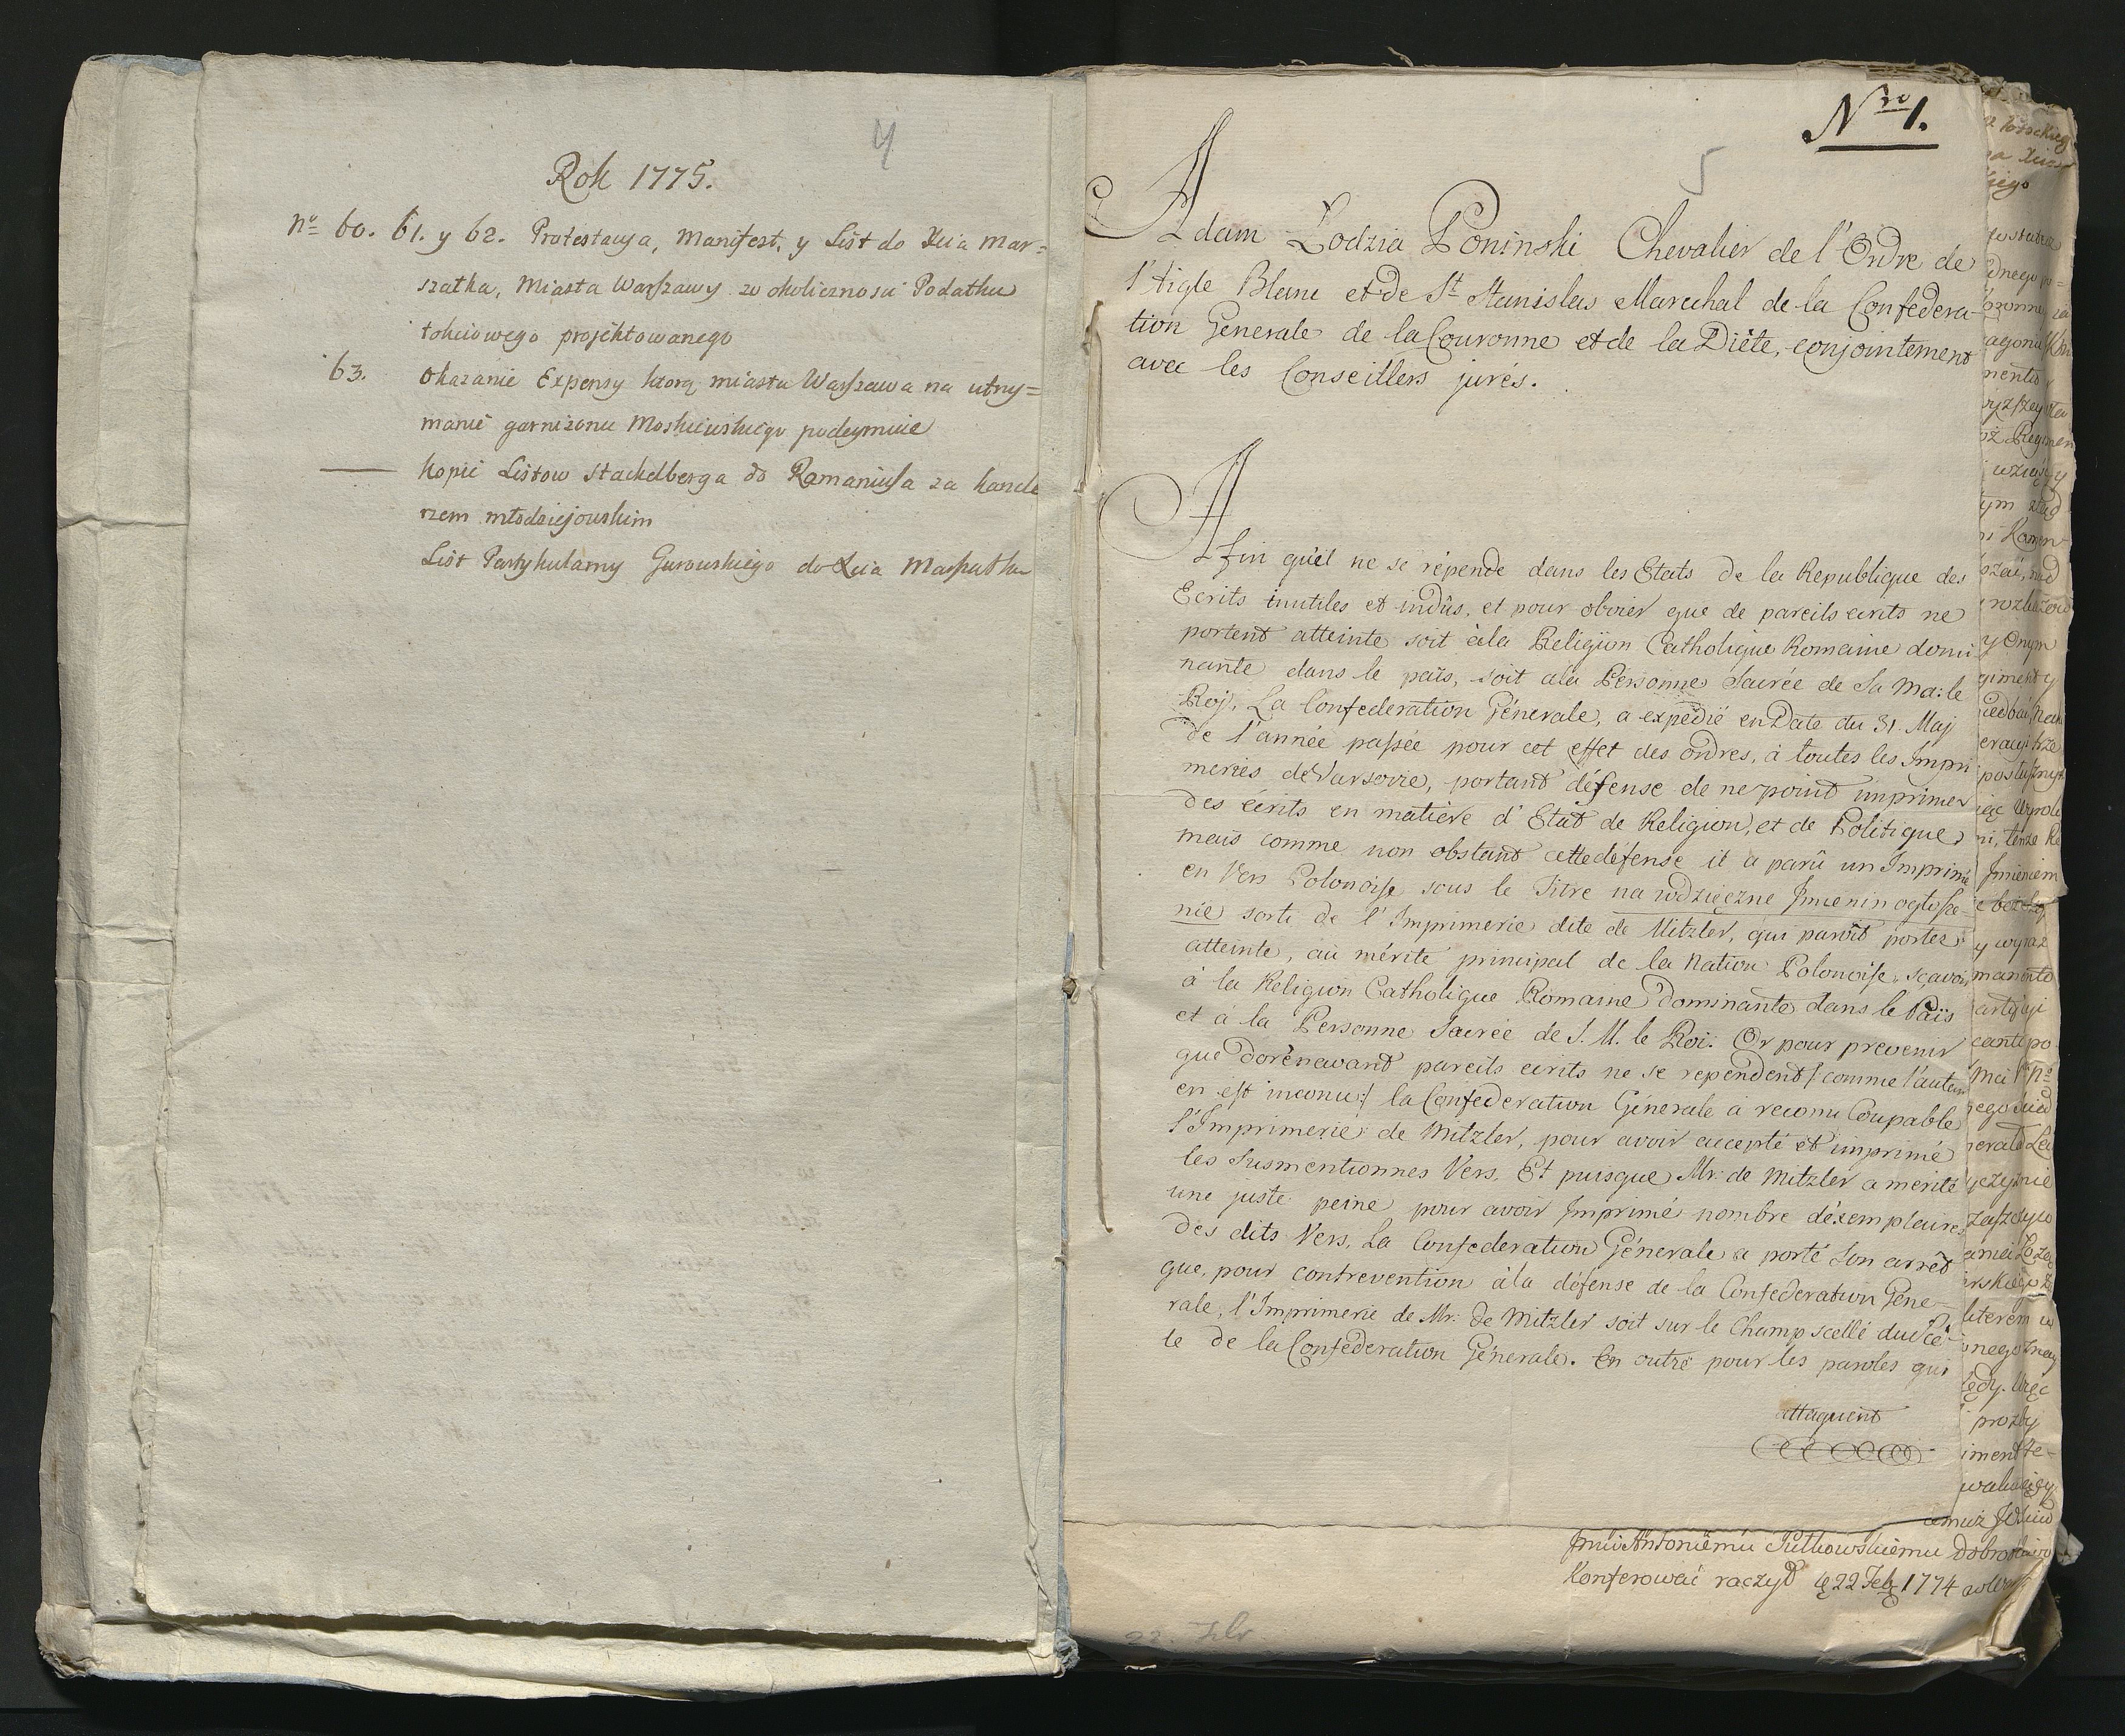 4
Rok 1775.
nº 60. 61. y 62. Protestacya, Manifest, y List do Xcia Mar=
szałka, Miasta Warszawy w okolicznosci Podatku
łokciowego projektowanego
63. Okazanie Expensy ktorą miasto Warszawa na utrzy=
manie garnizonu Moskiewskiego podeymuie
Kopie Listow Stackelberga do Romaniusa za kancle
rzem młodziejowskim
List Partykularny Gurowskiego do Xcia Marszałka
Nro 1.
5
Adam Łodzia Poninski Chevalier de l'Ordre de
l'Aigle Blanc et de St Stanislas Marechal de la Confedera-
tion Generale de la Couronne et de la Diéte, conjointement
avec les Conseillers jurés.
Afin qu'il ne se répende dans les Etats de la Republique des
Ecrits inutiles et indûs, et pour obvier que de pareils ecrits ne
portent atteinte soit à la Religion Catholique Romaine domi
nante dans le païs, soit à la Personne Sacrée de Sa Ma: le
Roj, La Confederation Génerale, a expédié en Date du 31. Maj
de l'année passée pour cet effet des ordres, à toutes les Impri
meries de Varsovie, portant défense de ne point imprimer
des écrits en matiére d'Etat de Religion, et de Politique,
mais comme non obstant cette défense il a parû un Imprimé
en Vers Polonoise sous le Titre na wdzięczne Jmienin ogłosze-
nie sorti de l'Imprimerie dite de Mitzler, qui paroît porter
atteinte, au mérite principal de la Nation Polonoise, sçavoir
à la Religion Catholique Romaine dominante dans le Païs
et à la Personne Sacrée de S. M. le Roi. Or pour prevenir
que dorénavant pareils ecrits ne se rependent /: comme l'auteur
en est inconu :/ la Confederation Génerale à reconu Coupable
l'Imprimerie de Mitzler, pour avoir accepté et imprimé
les Susmentionnes Vers, Et puisque Mr. de Mitzler a merité
une juste peine pour avoir Imprimé nombre d'éxemplaires
des dits Vers, La Confederation Génerale a porté son arrêt
que, pour contrevention à la défense de la Confederation Géne-
rale, l'Imprimerie de Mr. de Mitzler soit sur le Champ scellé du Cè-
le de la Confederation Génerale. En outre pour les paroles qui
attaquent
Antoniemu Sutkowskiemu
Konferować raczył 22 Feb 1774
22. Febr